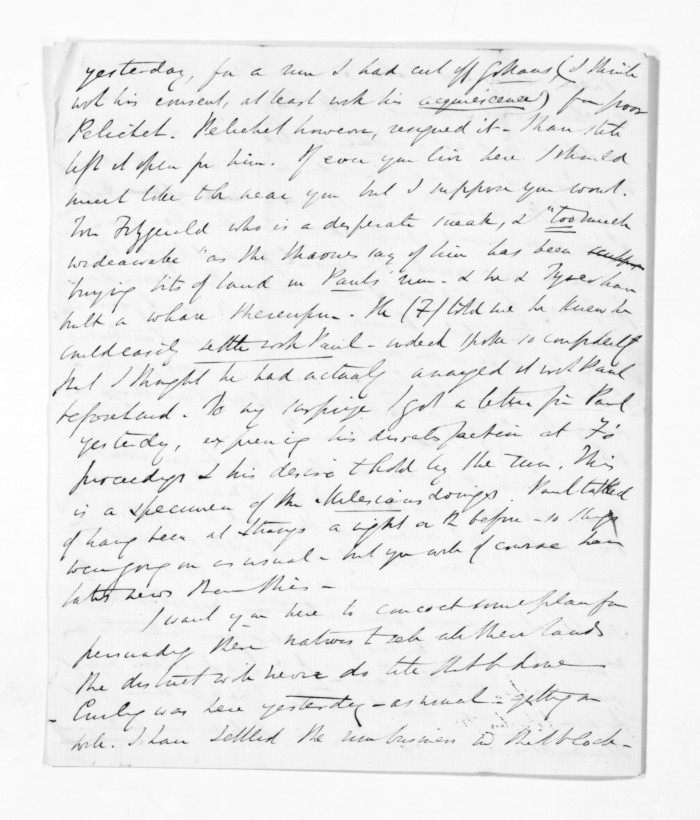 yesterday, for a run I had cut off Gollans (I think
with his consent, at least with his acquiescence) for poor
Pelichet. Pelichet however, resigned it - Than state
left it open for him. If ever you live here I should
much like to be near you but I suppose you wont.
Tom Fitzgerald who is a desperate sneak, & "too much
wideawake" as the Maories say of him has been
buying bits of land in Pauls' run - & he & Tyser have
built a whare thereupon. He (F) told me he knew he
could easily settle with Paul - indeed spoke so confidently
that I thought he had actually arranged it with Paul
beforehand. To my surprise I got a letter from Paul
yesterday, expressing his dissatisfaction at F's
proceedgs & his desire to hold by the run. This
is a specimen of the Milesians doings. Paul talked
of having been at a night or 2 before - so things
were going on as usual - but you will of course have
later news than this -
I want you here to concoct some plan for
persuading these natives to sell all their lands
the district will never do till that be done
Curling was here yesterday - as usual - getting on
well. I have settled the run business in that block -